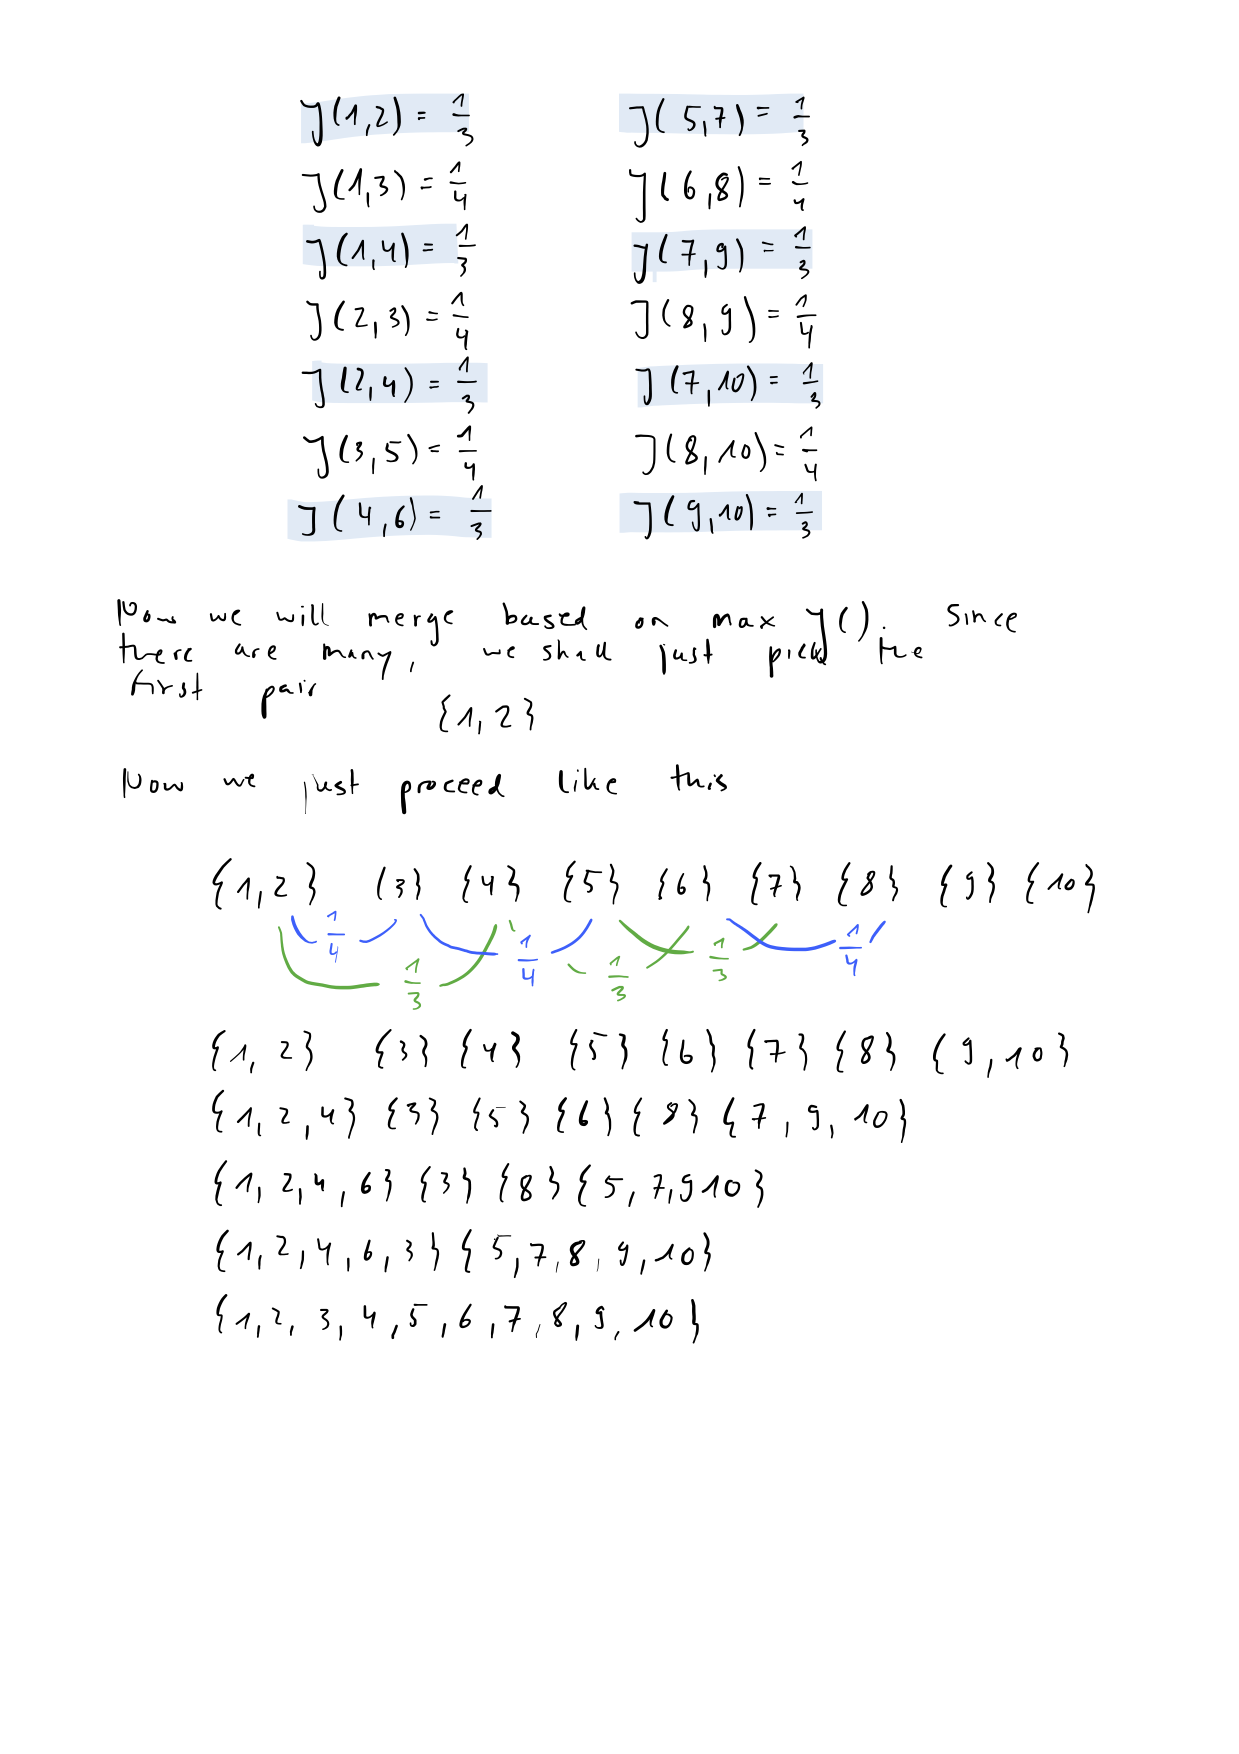 J(1,2) = 1/3
J(1,3) = 1/4
J(1,4) = 1/3
J(2,3) = 1/4
J(2,4) = 1/3
J(3,5) = 1/4
J(4,6) = 1/3
J(5,7) = 1/3
J(6,8) = 1/4
J(7,9) = 1/3
J(8,9) = 1/4
J(7,10) = 1/3
J(8,10) = 1/4
J(9,10) = 1/3
Now we will merge based on max J(). Since
there are many, we shall just pick the
first pair
{1,2}
Now we just proceed like this
{1,2} {3} {4} {5} {6} {7} {8} {9} {10}
1/4 1/3 1/4 1/3 1/3 1/4
{1,2} {3} {4} {5} {6} {7} {8} {9,10}
{1,2,4} {3} {5} {6} {8} {7,9,10}
{1,2,4,6} {3} {8} {5,7,910}
{1,2,4,6,3} {5,7,8,9,10}
{1,2,3,4,5,6,7,8,9,10}